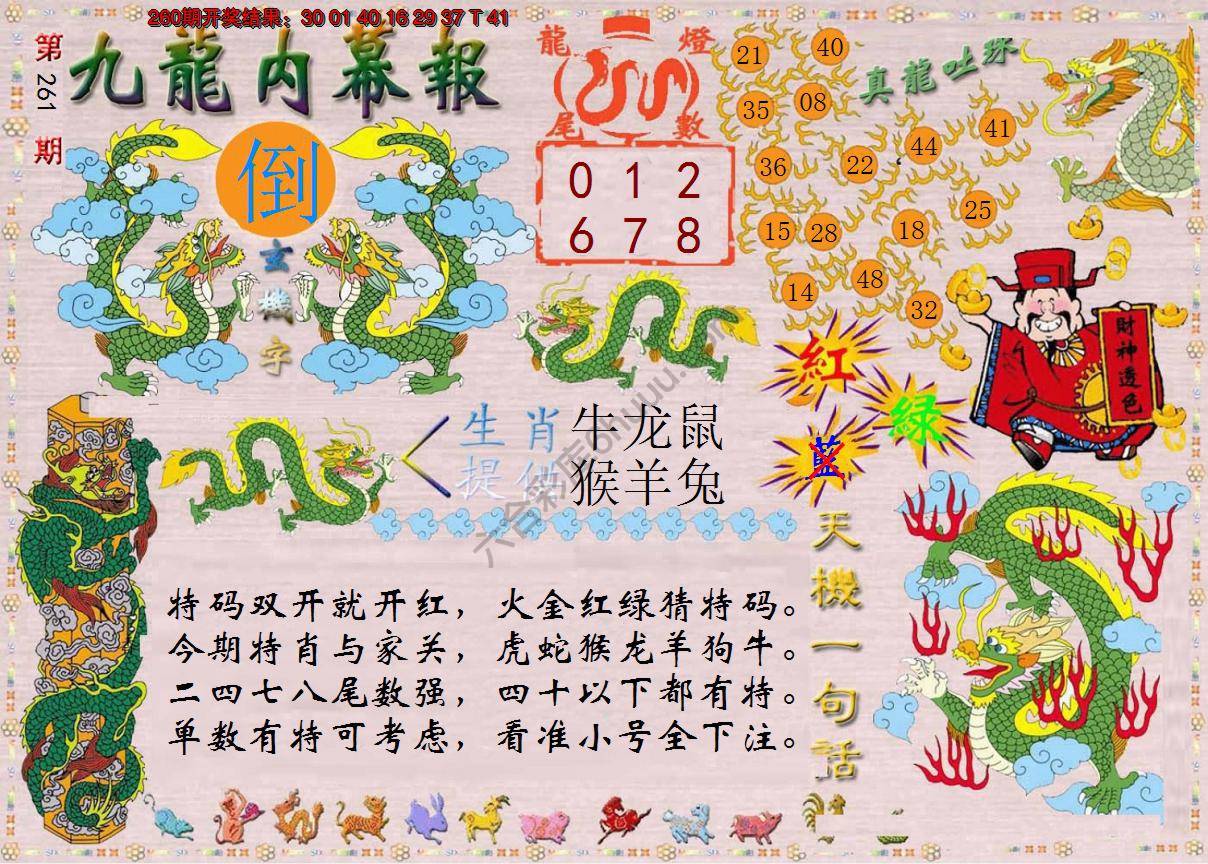 260期开奖结果：30 01 40 16 29 37 T 41
第261期
九龍内幕報
倒
玄機字
龍燈尾數
0 1 2
6 7 8
真龍吐珠
21 40
35 08
36 22 44 41
15 28 18 25
14 48 32
財神透色
紅
綠
藍
生肖 牛龙鼠
提供 猴羊兔
六合彩库
天機一句話
特码双开就开红，火金红绿猜特码。
今期特肖与家关，虎蛇猴龙羊狗牛。
二四七八尾数强，四十以下都有特。
单数有特可考虑，看准小号全下注。